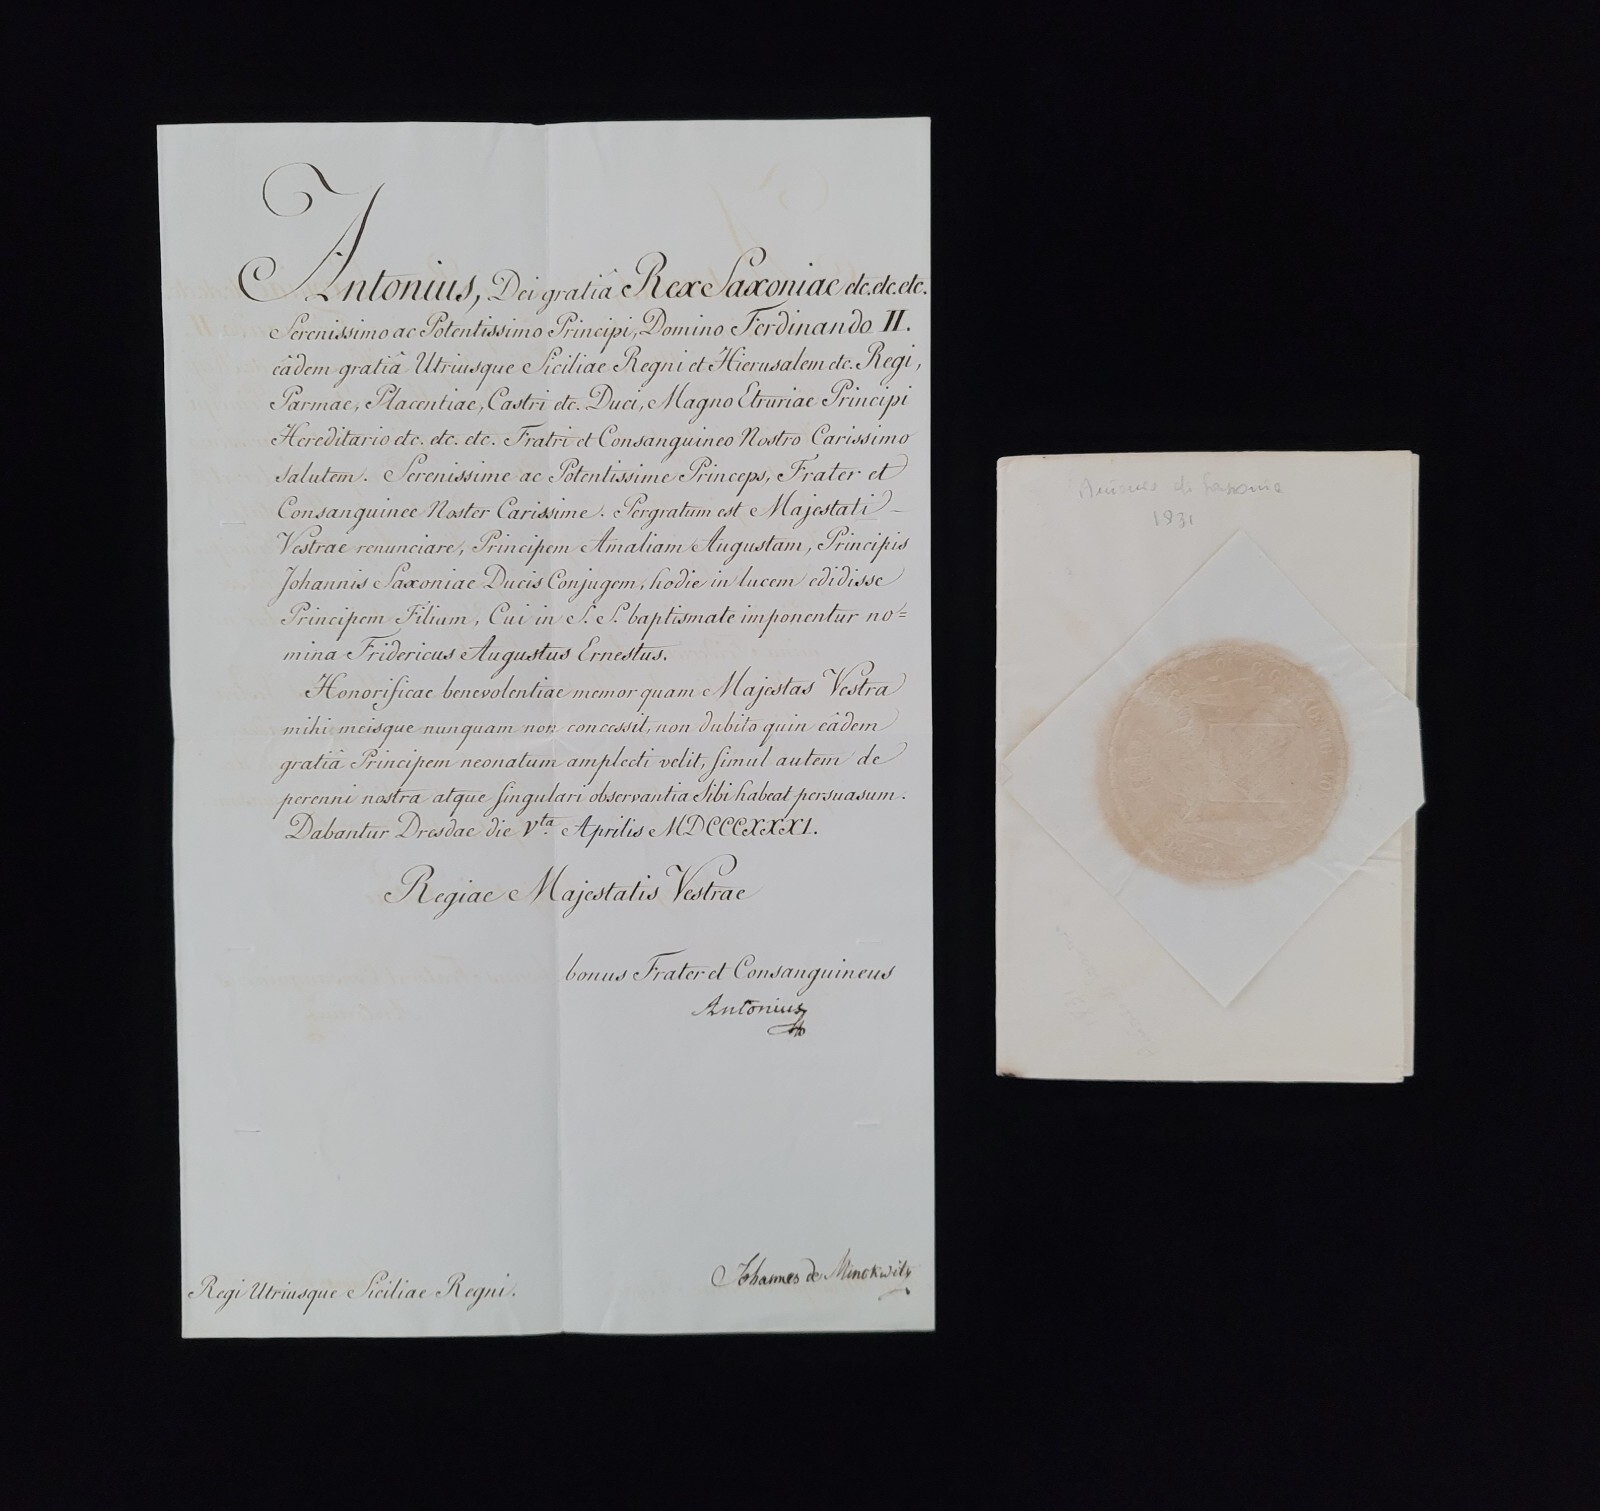 Antonius, Dei gratiâ Rex Saxoniae etc. etc. etc.
Serenissimo ac Potentissimo Principi, Domino Ferdinando II.
eâdem gratiâ Utriusque Siciliae Regni et Hierusalem etc. Regi,
Parmae, Placentiae, Castri etc. Duci, Magno Etruriae Principi
Hereditario etc. etc. etc. Fratri et Consanguineo Nostro Carissimo
salutem. Serenissime ac Potentissime Princeps, Frater et
Consanguinee Noster Carissime. Pergratum est Majestati
Vestrae renunciare, Principem Amaliam Augustam, Principis
Johannis Saxoniae Ducis Conjugem, hodie in lucem edidisse
Principem Filium, Cui in S. S. baptismate imponentur no=
mina Fridericus Augustus Ernestus.
Honorificae benevolentiae memor quam Majestas Vestra
mihi meisque nunquam non concessit, non dubito quin eâdem
gratiâ Principem neonatum amplecti velit, simul autem de
perenni nostra atque singulari observantia Sibi habeat persuasum.
Dabantur Dresdae die Vta. Aprilis MDCCCXXXI.
Regiae Majestatis Vestrae
bonus Frater et Consanguineus
Antonius
Regi Utriusque Siciliae Regni.
Johannes de Minckwitz
di Sassonia
1831